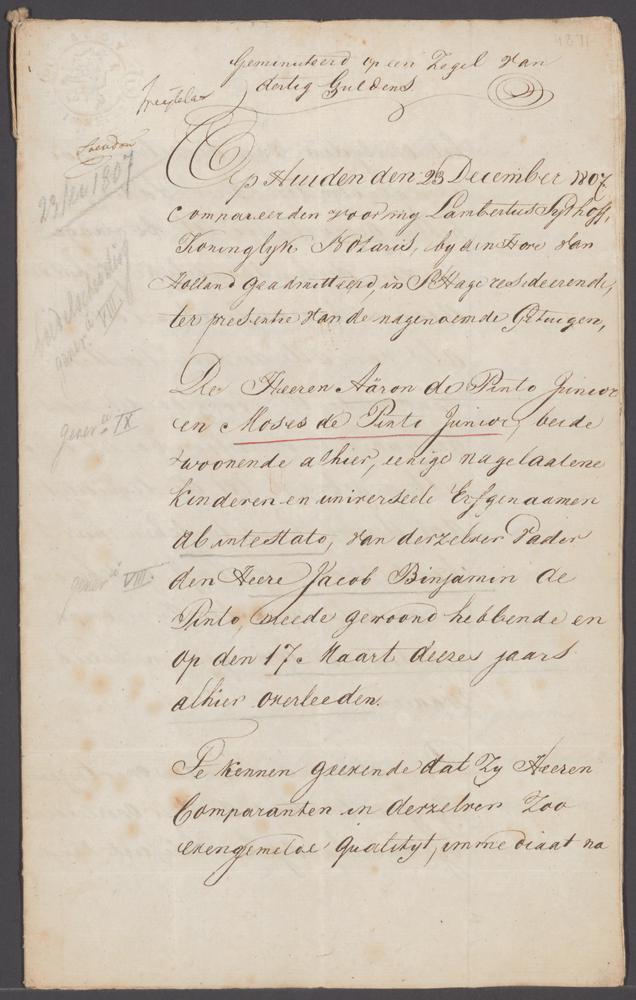 4371
Geminuteerd op een Zegel van
dertig Guldens
Op Huiden den 23 December 1807
Compareerden voor my Lambertus Sythoff,
Koninglyk Notaris, by den Hove van
Holland geadmitteerd, in S'Hage resideerende,
ter presentie van de nagenoemde Getuigen,
De Heeren Aäron de Pinto Junior
en Moses de Pinto Junior, beide
woonende alhier, eenige nagelaatene
kinderen en universeele Erfgenaamen
ab intestato, van derzelver Vader
den Heere Jacob Binjamin de
Pinto, meede gewoond hebbende en
op den 17 Maart deezes jaars
alhier overleeden.
Te kennen geevende dat Zy Heeren
Comparanten in derzelver Zoo
evengemelde qualityt, immediaat na
23/12 1807
boedelscheiding
gener. a VIII
gener. a IX
gener. a VIII